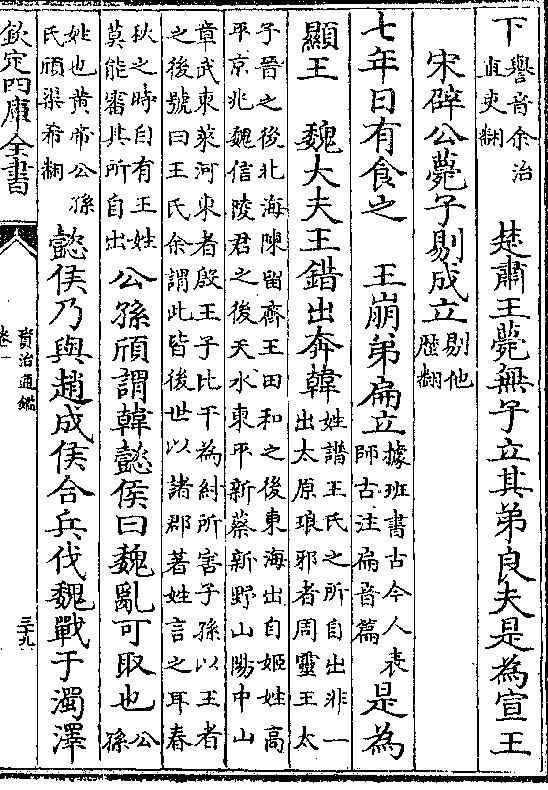 下譽音余治直吏翻 楚肅王薨無子立其弟良夫是為宣王
宋辟公薨子剔成立剔他歷翻
七年日有食之 王崩弟扁立據班書古今人表師古注扁音篇是為
顯王 魏大夫王錯出奔韓姓譜王氏之所自出非一出太原琅邪者周靈王太
子晉之後北海陳留齊王田和之後東海出自姬姓高平京兆魏信陵君之後天水東平新蔡新野山陽中山
章武東萊河東者殷王子比干為紂所害子孫以王者之後號曰王氏余謂此皆後世以諸郡著姓言之耳春
秋之時自有王姓莫能審其所自出 公孫頎謂韓懿侯曰魏亂可取也公孫
姓也黃帝公孫氏頎渠希翻 懿侯乃與趙成侯合兵伐魏戰于濁澤
欽定四庫全書
資治通鑑
卷一
三九